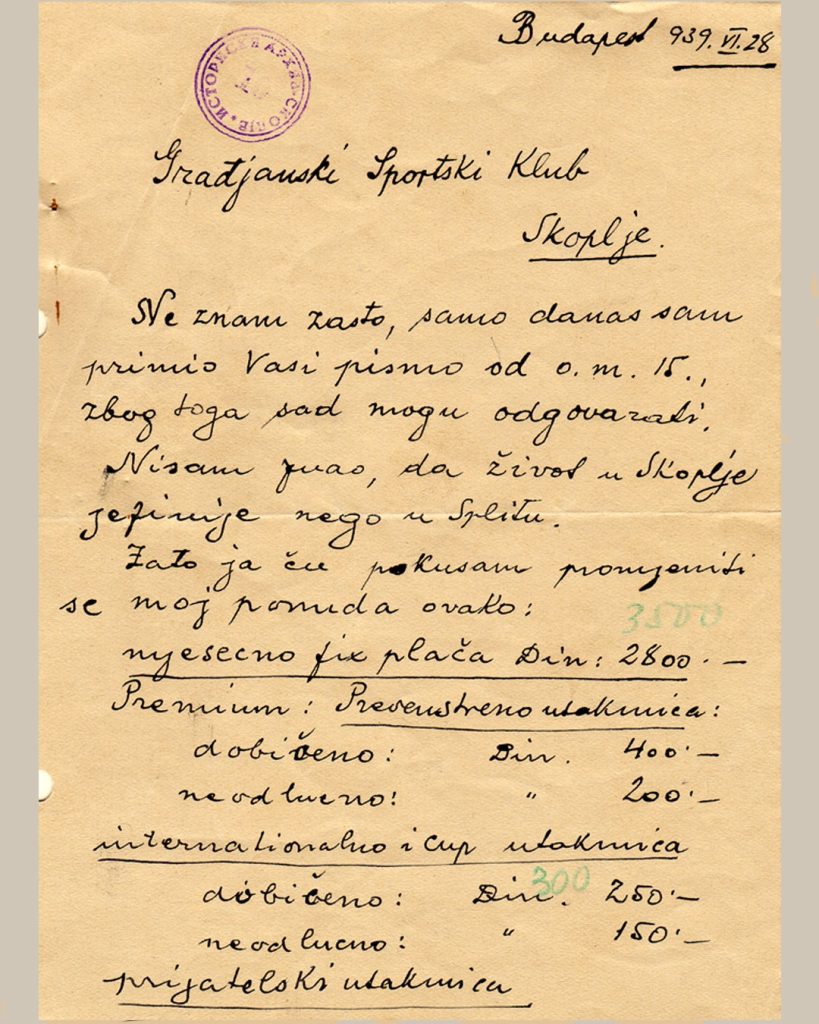 Budapest 939. VI. 28
ИСТОРИСКА АРХИВА-СКОПЈЕ
Građjanski Sportski Klub
Skoplje.
Ne znam zasto, samo danas sam
primio Vasi pismo od o. m. 15.,
zbog toga sad mogu odgovarati.
Nisam znao, da život u Skoplje
jefinije nego u Splitu.
Zato ja ču pokusam promjeniti
se moj ponuda ovako:
3500
mjesecno fix plača Din: 2800.-
Premium: Prevenstreno utakmica:
dobičeno: Din. 400.-
neodlucno: " 200.-
internationalno i cup utakmica
300
dobičeno: Din. 250.-
neodlucno: " 150.-
prijatelski utakmica